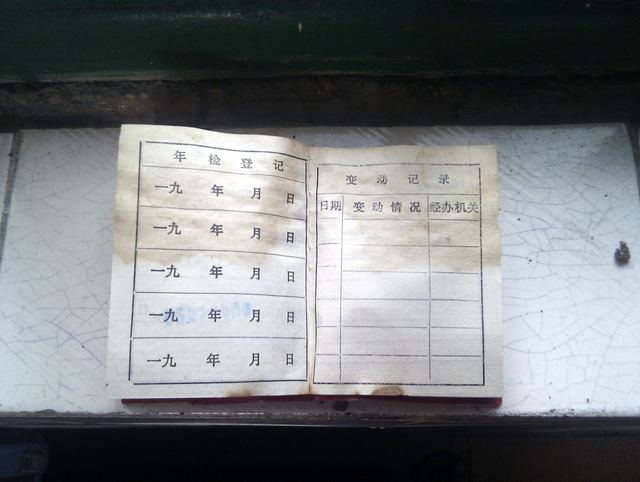 年检登记
一九 年 月 日
一九 年 月 日
一九 年 月 日
一九 年 月 日
一九 年 月 日
变动记录
日期 变动情况 经办机关